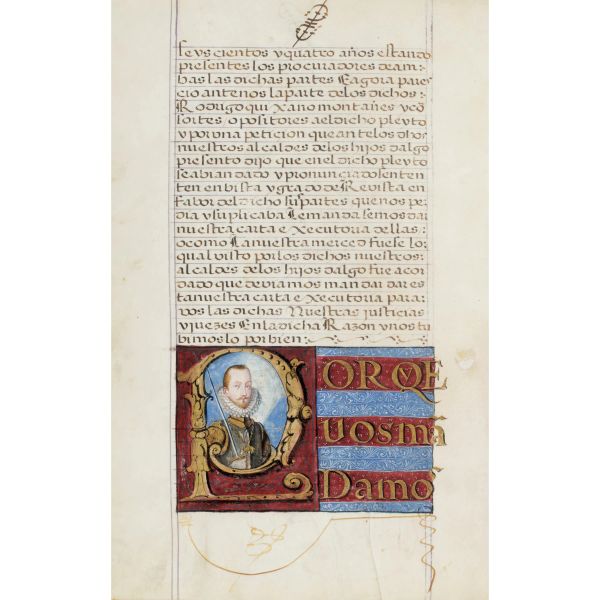 seys cientos y quatro años estando
presentes los procuradores de am-
bas las dichas partes E agora pares
cio ante nos la parte de los dichos:
Rodrigo qui xano montañes y cō
sortes / o positores a el dicho pleyto
y por una peticion que ante los dhos
nuestros al caldes de los hijos dalgo
presento dijo que en el dicho pleyto
se abian dado y pronunciado senten
ten en bista y grado de Revista en
fabor del dicho su s partes que nos pe
dia y su plicaba Le manda semos dar
nuestra carta e xecutoria dellas:
o como La nuestra merced fuese lo
qual visto por los dichos nuestros:
al caldes de los hijos dalgo fue acor
dado que deviamos man dar dar es
ta nuestra carta e xecutoria para:
vos las dichas Nuestras justicias
y juezes En la dicha Razon y nos tu
bimos lo por bien:
PORQVE
vos mā
Damos